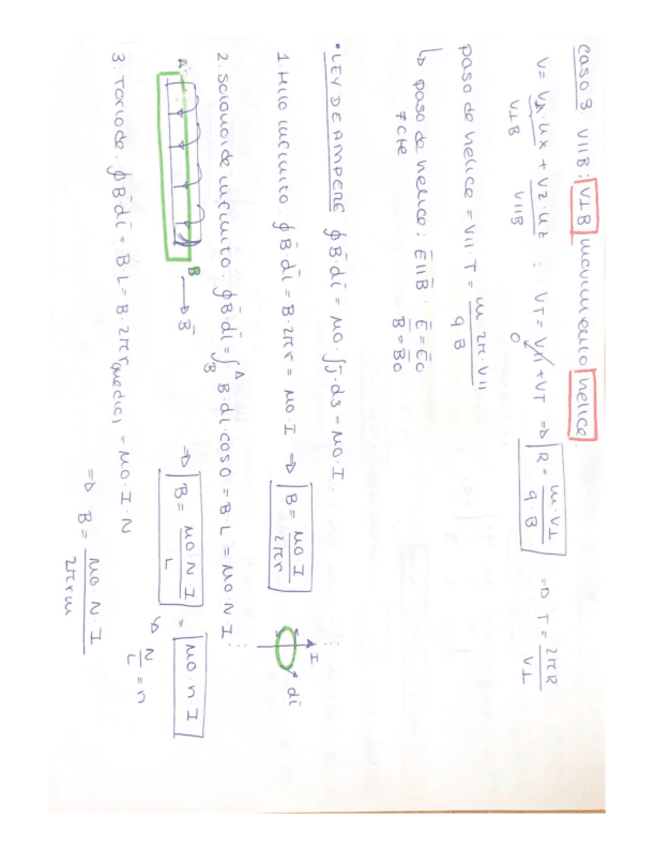 Caso 3: V∥B; V⊥B movimiento helice.
V = Vx·ux + Vz·uz ; VT = V∥ + VT ⇒ R = m·V⊥ / q·B ⇒ T = 2πR / V⊥
V⊥B V∥B 0
paso de helice = V∥·T = m·2π·V∥ / q B
↳ paso de helice: E∥B : E = E0
≠ cte B = B0
• LEY DE AMPERE ∮B·dl = μ0·∫J·ds = μ0·I
1. Hilo infinito. ∮B·dl = B·2πr = μ0·I ⇒ B = μ0·I / 2πr
I
dl
2. Solenoide infinito. ∮B·dl = ∫ᴬ_B B·dl·cos0 = B·L = μ0·N·I
A B → B ⇒ B = μ0·N·I / L = μ0·n·I
↳ N/L = n
3. Toroide. ∮B·dl = B·L = B·2πr(medio) = μ0·I·N
⇒ B = μ0·N·I / 2πrm